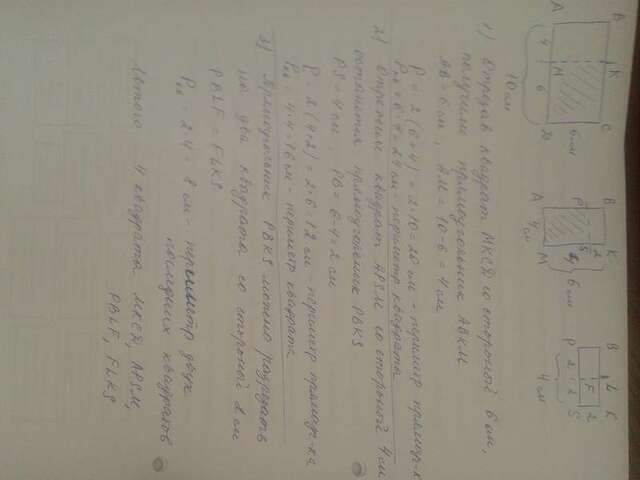 A B
4
K
M
10 см
6
D 6 см C
B K
P 2 S
A 4 см M
6 см
B L K
P 2 F 2 S
4 см
1) Отрезав квадрат MKCD со стороной 6 см,
получили прямоугольник ABKM
AB = 6 см, AM = 10-6 = 4 см
P = 2(6+4) = 2·10 = 20 см - периметр прямоуг-ка
Pкв = 6·4 = 24 см - периметр квадрата
2) Отрезаем квадрат APSM со стороной 4 см
останется прямоугольник PBKS
PS = 4 см, PB = 6-4 = 2 см
P = 2(4+2) = 2·6 = 12 см - периметр прямоуг-ка
Pкв = 4·4 = 16 см - периметр квадрата
3) Прямоугольник PBKS можно разрезать
на два квадрата со стороной 2 см
PBLF = FLKS
Pкв = 2·4 = 8 см - периметр двух
последних квадратов
Итого 4 квадрата MKCD, APSM,
PBLF, FLKS